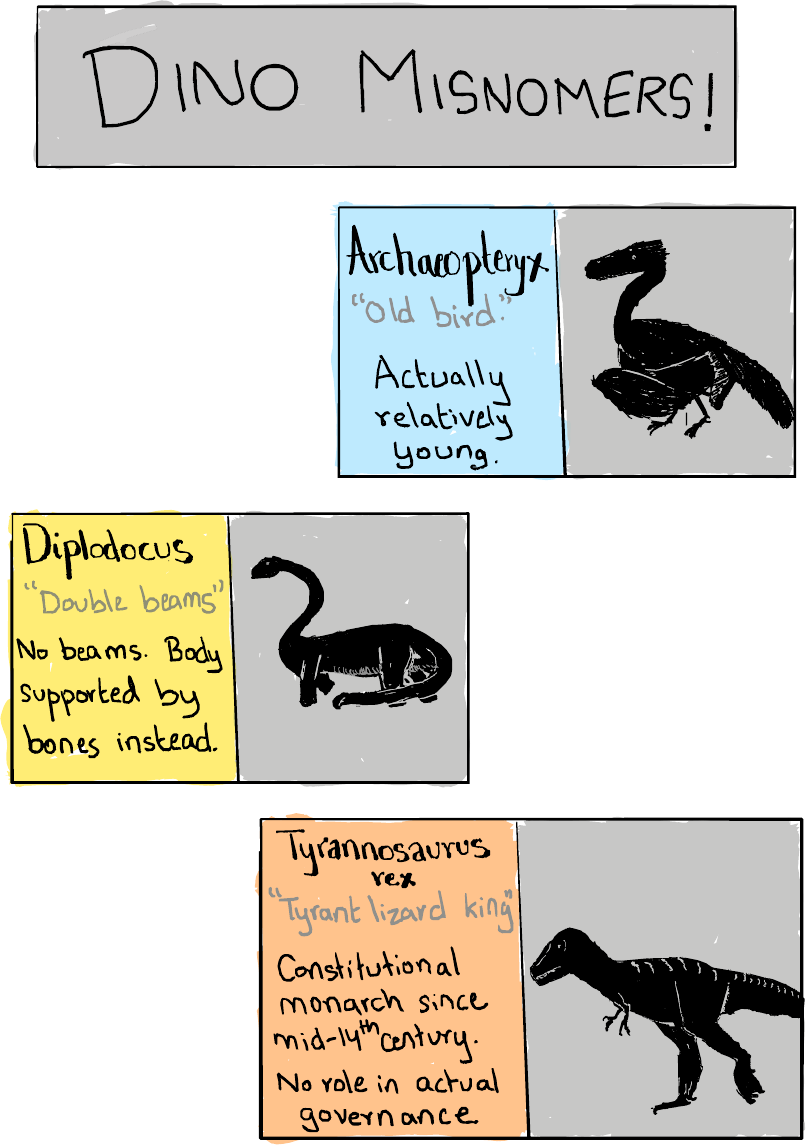 DINO MISNOMERS!
Archaeopteryx
"Old bird."
Actually
relatively
young.
Diplodocus
"Double beams"
No beams. Body
supported by
bones instead.
Tyrannosaurus
rex
"Tyrant lizard king"
Constitutional
monarch since
mid-14th century.
No role in actual
governance